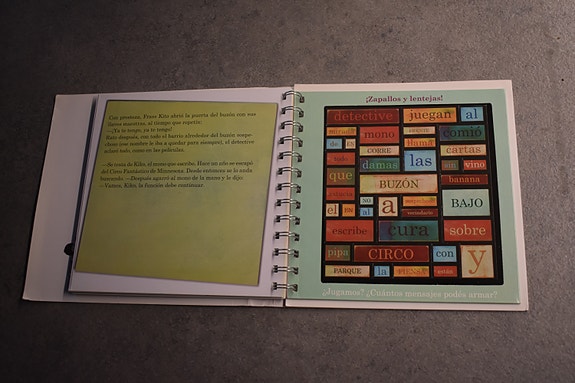 Con presteza, Franz Kito abrió la puerta del buzón con sus
llaves maestras, al tiempo que repetía:
—¡Ya te tengo, ya te tengo!
Rato después, con todo el barrio alrededor del buzón sospe-
choso (ese nombre le iba a quedar para siempre), el detective
aclaró todo, como en las películas.
—Se trata de Kiko, el mono que escribe. Hace un año se escapó
del Circo Fantástico de Minnesota. Desde entonces se lo anda
buscando. —Después agarró al mono de la mano y le dijo:
—Vamos, Kiko, la función debe continuar.
¡Zapallos y lentejas!
detective juegan al
mirada mono frente comió
de ES CORRE llama cartas
todo damas las sin vino
que BUZÓN banana
el EN al a BAJO
vecindario
escribe cura sobre
pipa CIRCO con y
PARQUE la PIENSA están
¿Jugamos? ¿Cuántos mensajes podés armar?